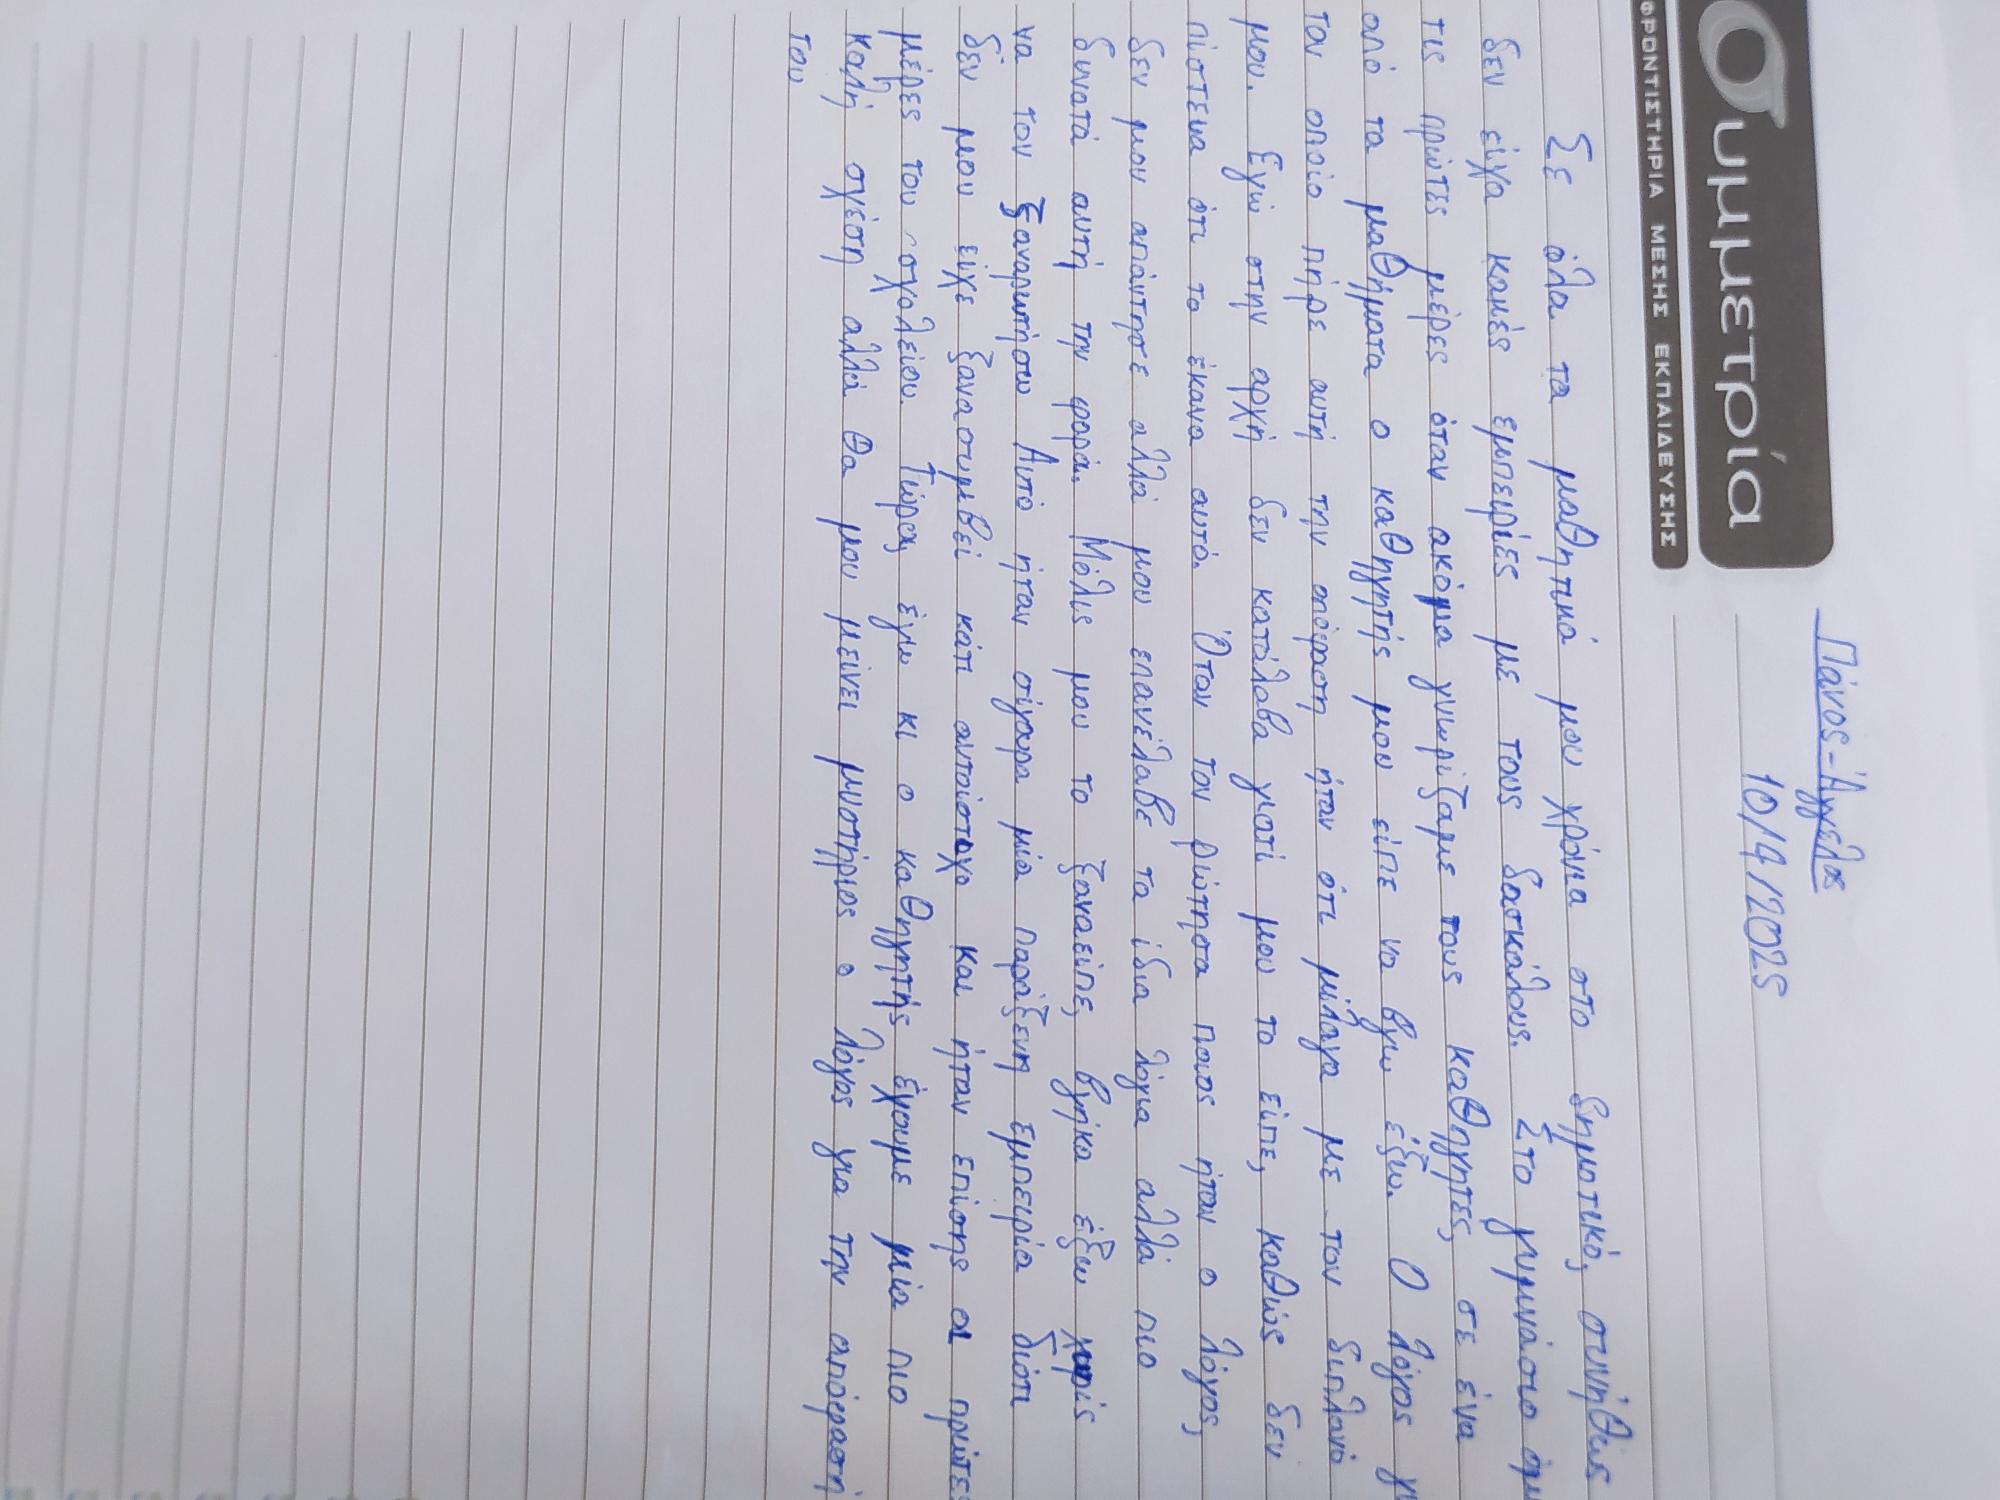 συμμετρία
ΦΡΟΝΤΙΣΤΗΡΙΑ ΜΕΣΗΣ ΕΚΠΑΙΔΕΥΣΗΣ
Πάνος-Άγγελος
10/4/2025
Σε όλα τα μαθητικά μου χρόνια στο δημοτικό, συνήθως
δεν είχα κακές εμπειρίες με τους δασκάλους. Στο γυμνάσιο όμ
τις πρώτες μέρες όταν ακόμα γνωρίζαμε τους καθηγητές, σε ένα
από τα μαθήματα ο καθηγητής μου είπε να βγω έξω. Ο λόγος γι
τον οποίο πήρε αυτή την απόφαση ήταν ότι μίλαγα με τον διπλανό
μου. Εγώ στην αρχή δεν κατάλαβα γιατί μου το είπε, καθώς δεν
πίστευα ότι το έκανα αυτό. Όταν τον ρώτησα ποιος ήταν ο λόγος,
δεν μου απάντησε αλλά μου επανέλαβε τα ίδια λόγια αλλά πιο
δυνατά αυτή την φορά. Μόλις μου το ξαναείπε, βγήκα έξω χωρίς
να τον ξαναρωτήσω Αυτό ήταν σίγουρα μία παράξενη εμπειρία διότι
δεν μου είχε ξανασυμβεί κάτι αντοίστοχο και ήταν επίσης οι πρώτες
μέρες του σχολείου. Τώρα, έγω κι ο καθηγητής έχουμε μία πιο
καλή σχέση αλλά θα μου μείνει μυστήριος ο λόγος για την απόφαση
του